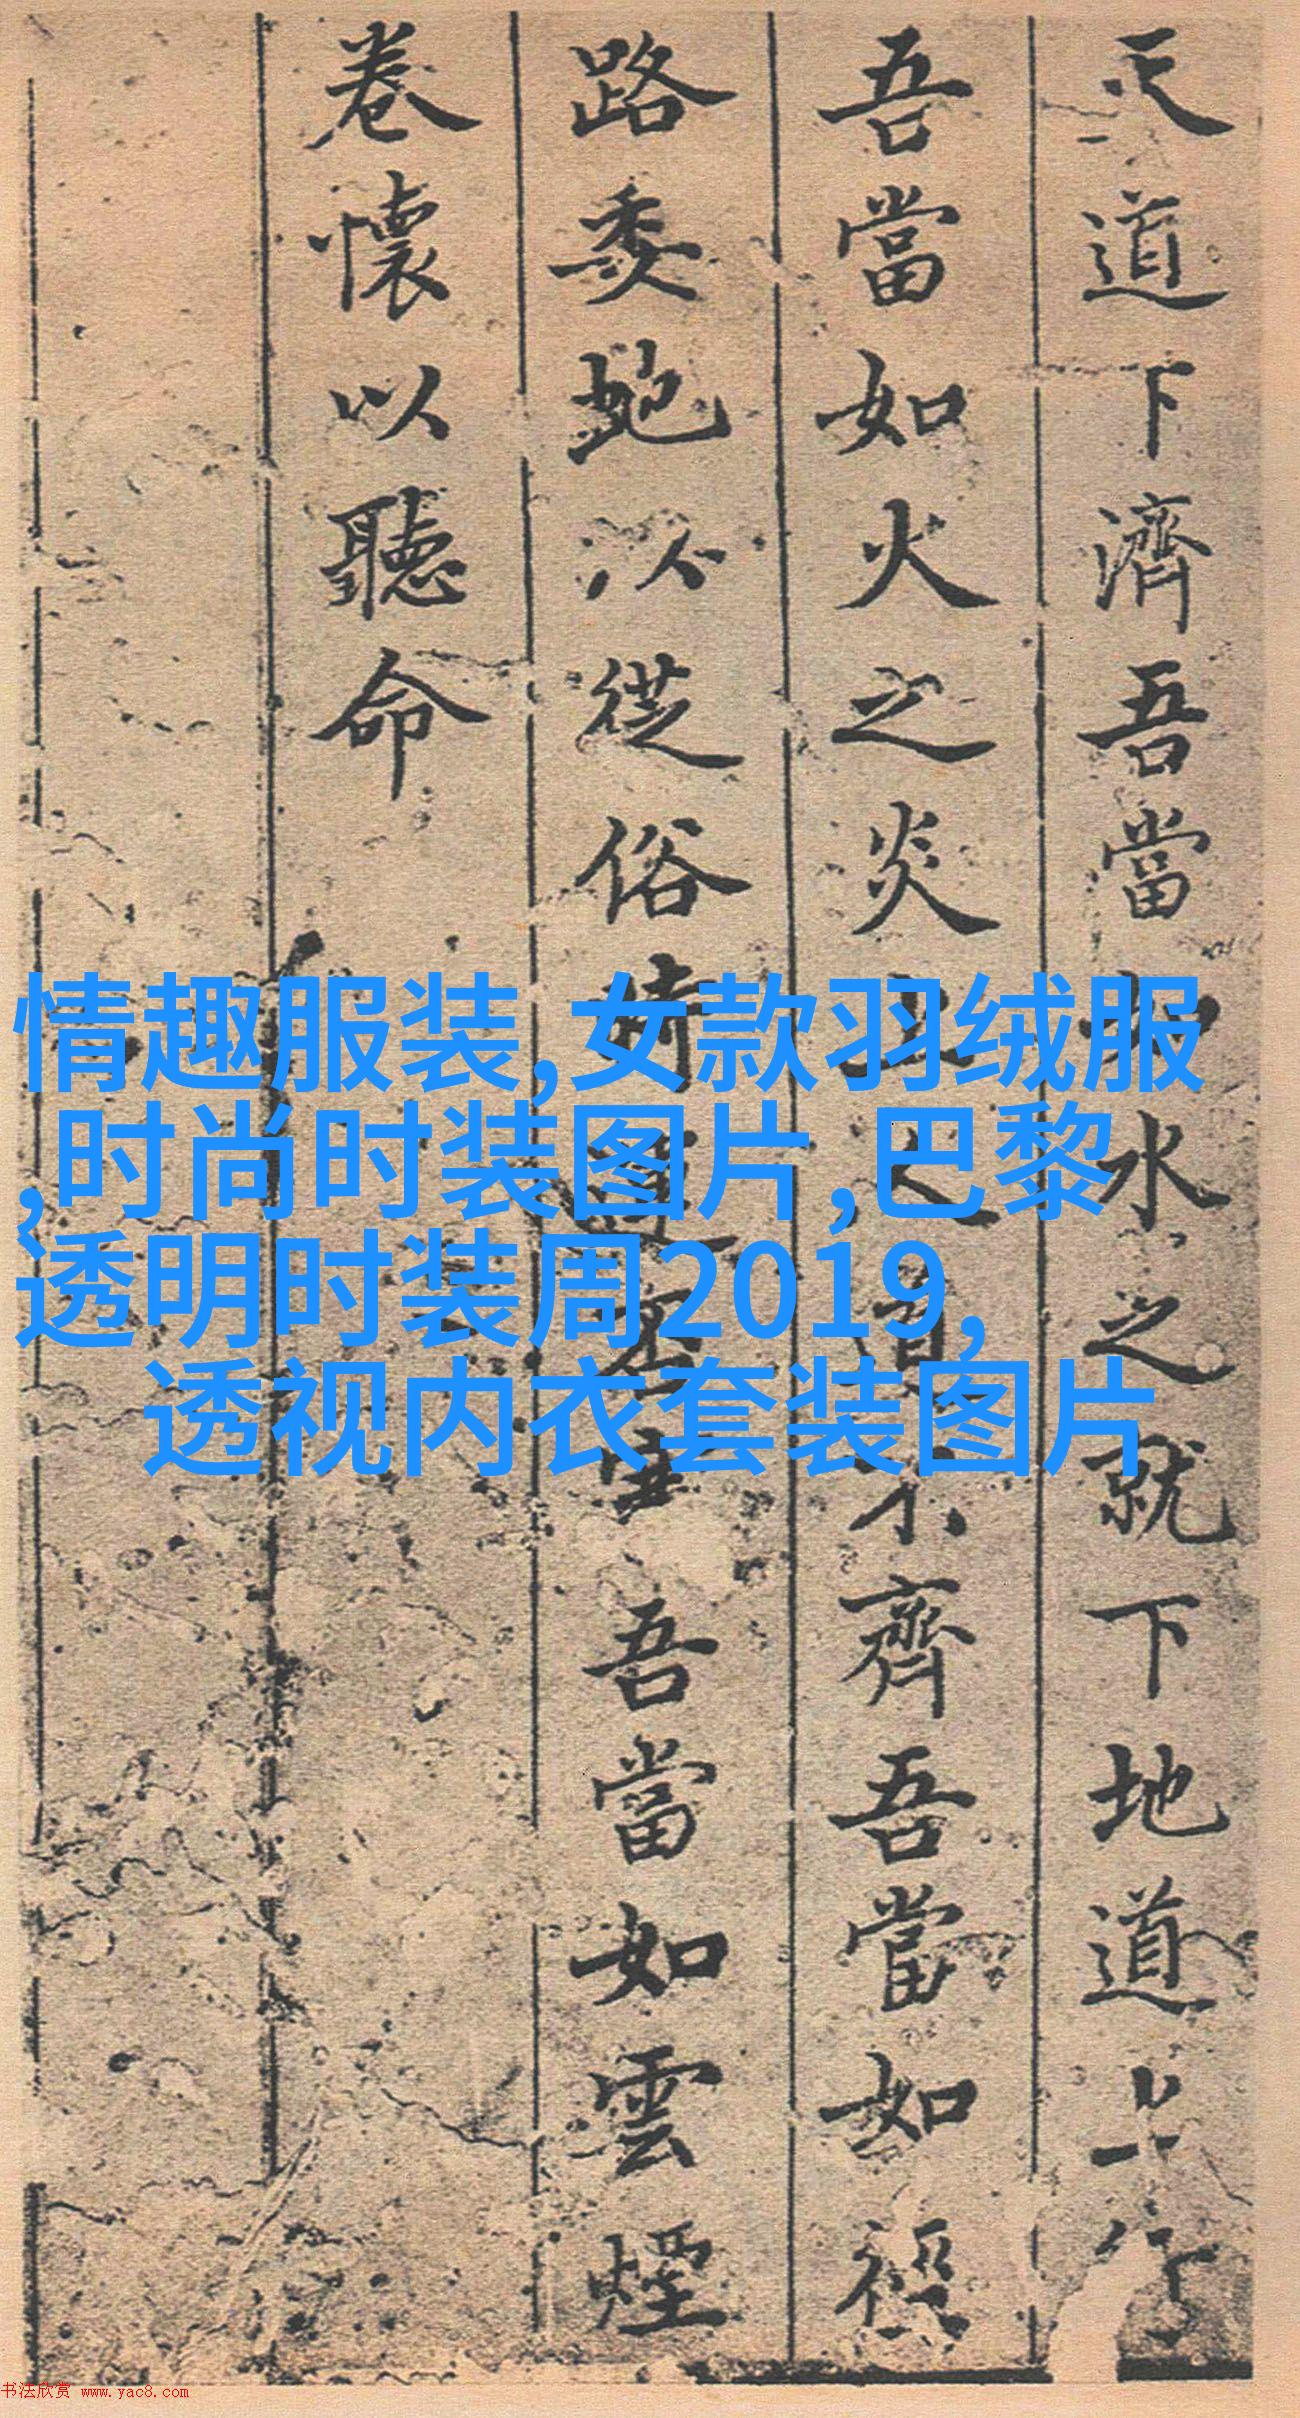 天道下濟吾當水之就下地道上行
吾當如火之炎上人不齊吾當如
路委虵以從俗吾當如雲煙
卷懷以聽命
情趣服装,女款羽绒服
,时尚时装图片,巴黎
透明时装周2019,
透视内衣套装图片
书法欣赏 www.yac8.com